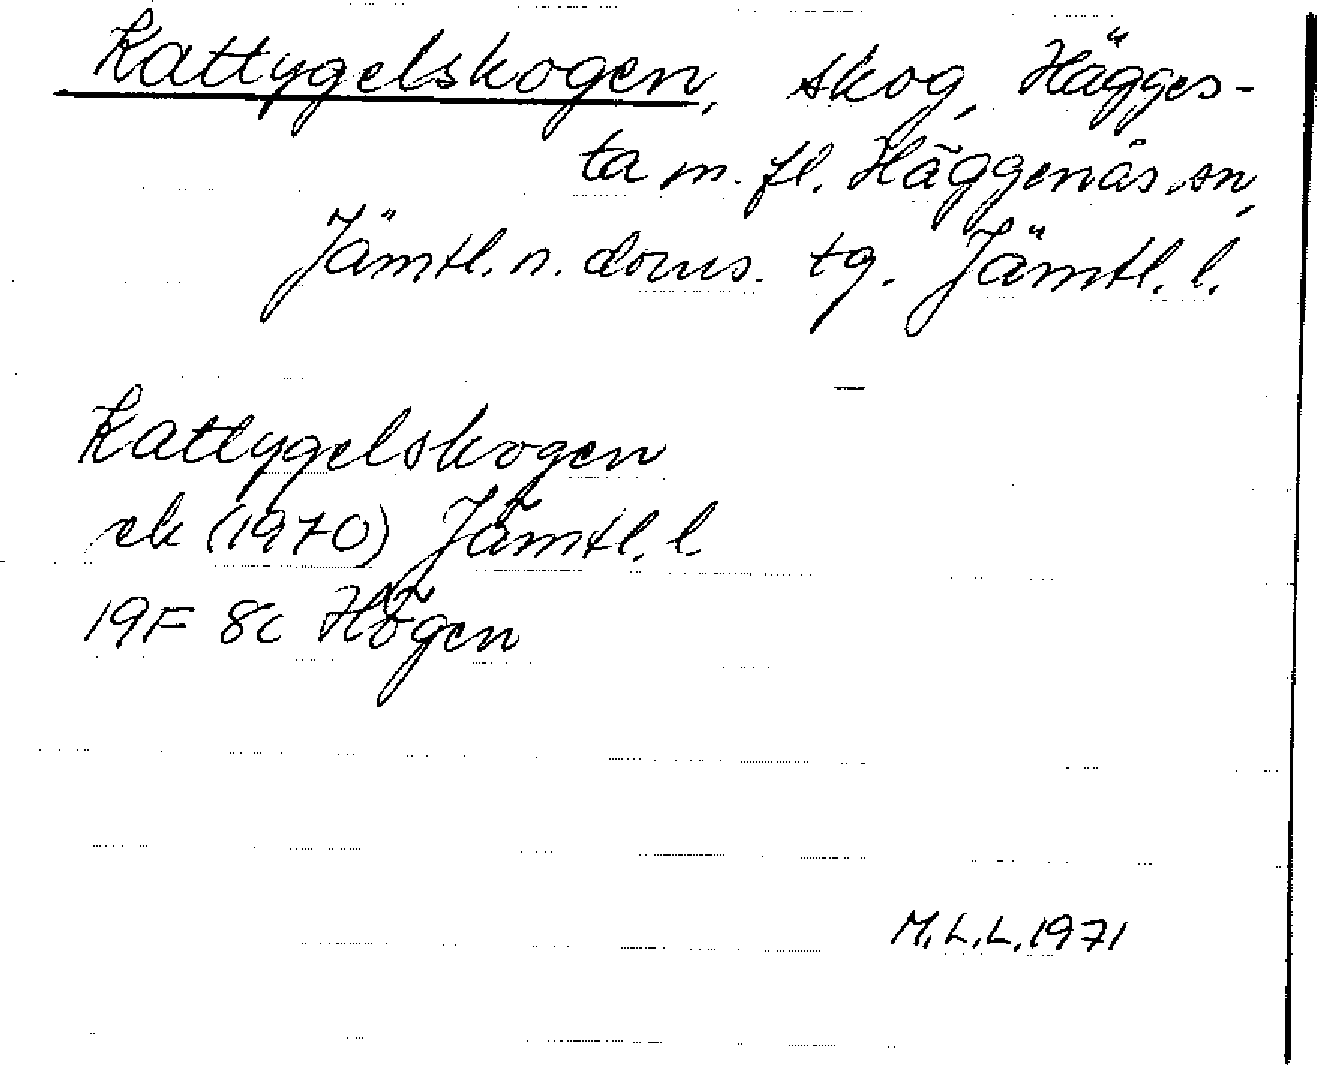 Kattygelskogen, skog, Hägges-
ta m. fl. Häggenås sn,
Jämtl. n. doms. tg. Jämtl. l.
Kattygelskogen
ek (1970) Jämtl. l.
19F 8c Högen
M.L.L. 1971